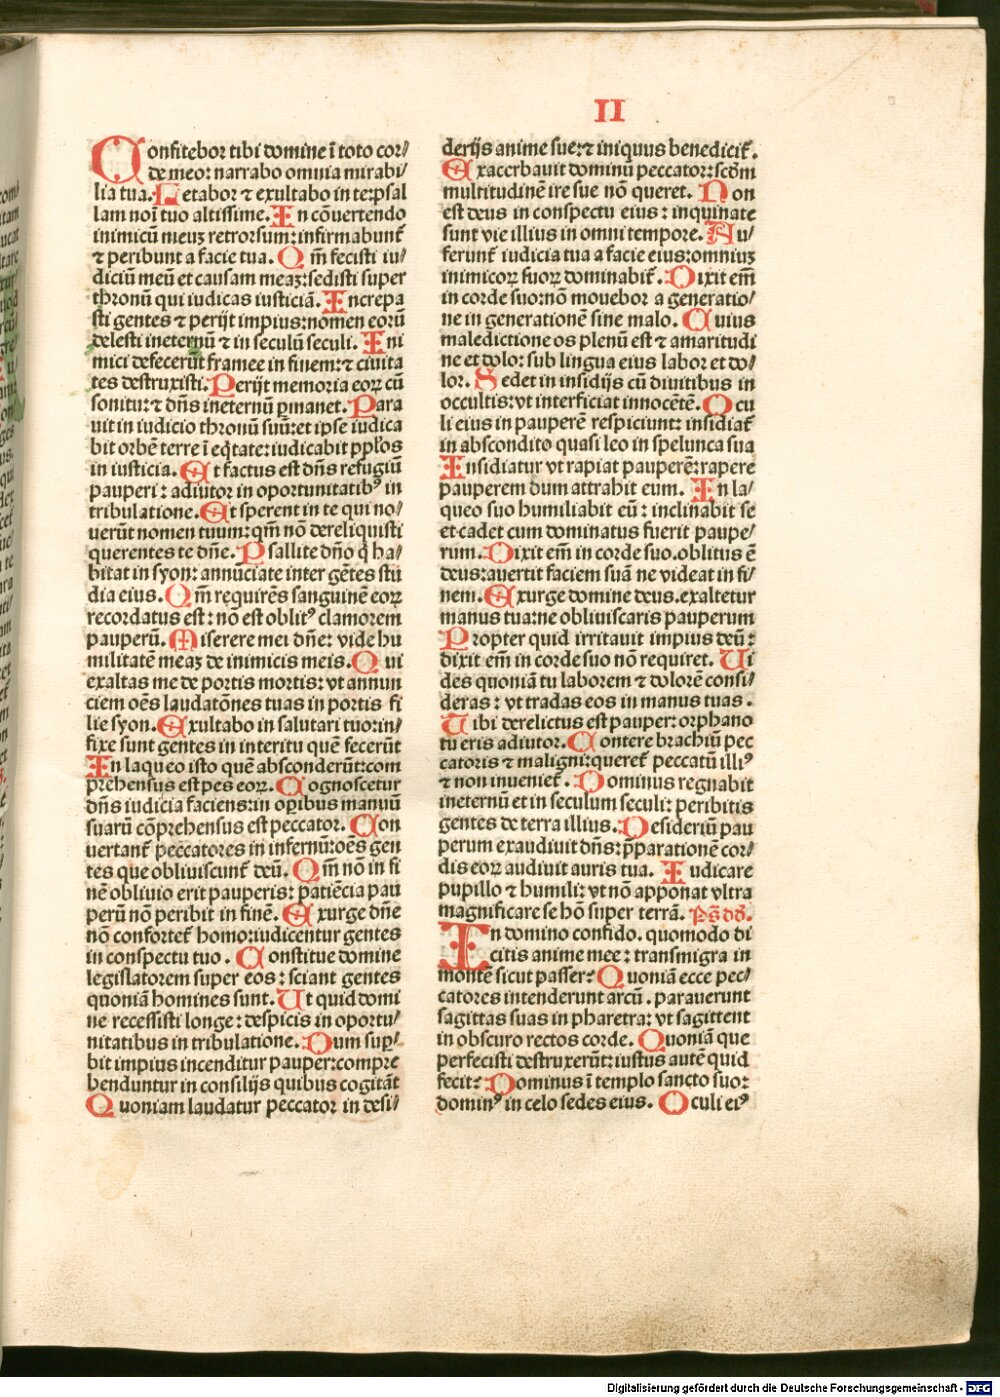 II
Confitebor tibi domine ī toto cor/
de meo: narrabo omnia mirabi/
lia tua. Letabor ⁊ exultabo in te: psal
lam noī tuo altissime. In cōuertendo
inimicū meuȝ retrorsum: infirmabunt᷑
⁊ peribunt a facie tua. Qm̄ fecisti iu/
diciū meū et causam meaȝ: sedisti super
thronū qui iudicas iusticiā. Increpa
sti gentes ⁊ perijt impius: nomen eorū
delesti ineternū ⁊ in seculū seculi. Ini
mici defecerūt framee in finem: ⁊ ciuita
tes destruxisti. Perijt memoria eoꝝ cū
sonitu: ⁊ dn̄s ineternū ꝑmanet. Para
uit in iudicio thronū suū: et ipse iudica
bit orbē terre ī eq̄tate: iudicabit pplōs
in iusticia. Et factus est dn̄s refugiū
pauperi: adiutor in oportunitatibꝰ in
tribulatione. Et sperent in te qui no/
uerūt nomen tuum: qm̄ nō dereliquisti
querentes te dn̄e. Psallite dn̄o q̇ ha/
bitat in syon: annūciate inter gētes stu
dia eius. Qm̄ requirēs sanguinē eoꝝ
recordatus est: nō est oblitꝰ clamorem
pauperū. Miserere mei dn̄e: vide hu
militatē meaȝ de inimicis meis. Qui
exaltas me de portis mortis: vt annun
ciem oēs laudatōnes tuas in portis fi
lie syon. Exultabo in salutari tuo: in/
fixe sunt gentes in interitu quē fecerūt
In laqueo isto quē absconderūt: com
prehensus est pes eoꝝ. Cognoscetur
dn̄s iudicia faciens: in oꝑibus manuū
suarū cōprehensus est peccator. Con
uertant᷑ peccatores in infernū: oēs gen
tes que obliuiscunt᷑ deū. Qm̄ nō in fi
nē obliuio erit pauperis: patiēcia pau
perū nō peribit in finē. Exurge dn̄e
nō confortet᷑ homo: iudicentur gentes
in conspectu tuo. Constitue domine
legislatorem super eos: sciant gentes
quoniā homines sunt. Ut quid domi
ne recessisti longe: despicis in oportu/
nitatibus in tribulatione. Dum suꝑ/
bit impius incenditur pauper: compre
henduntur in consilijs quibus cogitāt
Quoniam laudatur peccator in desi/
derijs anime sue: ⁊ iniquus benedicit᷑.
Exacerbauit dominū peccator: scd̄m
multitudinē ire sue nō queret. Non
est deus in conspectu eius: inquinate
sunt vie illius in omni tempore. Au/
ferunt᷑ iudicia tua a facie eius: omniuȝ
inimicoꝝ suoꝝ dominabit᷑. Dixit em̄
in corde suo: nō mouebor a generatio/
ne in generationē sine malo. Cuius
maledictione os plenū est ⁊ amaritudi
ne et dolo: sub lingua eius labor et do/
lor. Sedet in insidijs cū diuitibus in
occultis: vt interficiat innocētē. Ocu
li eius in pauperē respiciunt: insidiat᷑
in abscondito quasi leo in spelunca sua
Insidiatur vt rapiat pauperē: rapere
pauperem dum attrahit eum. In la/
queo suo humiliabit eū: inclinabit se
et cadet cum dominatus fuerit paupe/
rum. Dixit em̄ in corde suo. oblitus ē
deus: auertit faciem suā ne videat in fi/
nem. Exurge domine deus. exaltetur
manus tua: ne obliuiscaris pauperum
Propter quid irritauit impius deū:
dixit em̄ in corde suo nō requiret. Ui
des quoniā tu laborem ⁊ dolorē consi/
deras: vt tradas eos in manus tuas.
Tibi derelictus est pauper: orphano
tu eris adiutor. Contere brachiū pec
catoris ⁊ maligni: queret᷑ peccatū illiꝰ
⁊ non inueniet᷑. Dominus regnabit
ineternū et in seculum seculi: peribitis
gentes de terra illius. Desideriū pau
perum exaudiuit dn̄s: p̄parationē cor/
dis eoꝝ audiuit auris tua. Iudicare
pupillo ⁊ humili: vt nō apponat vltra
magnificare se hō super terrā. Ps̄ dd̄.
In domino confido. quomodo di
citis anime mee: transmigra in
montē sicut passer? Quoniā ecce pec/
catores intenderunt arcū. parauerunt
sagittas suas in pharetra: vt sagittent
in obscuro rectos corde. Quoniā que
perfecisti destruxerūt: iustus autē quid
fecit? Dominus ī templo sancto suo:
dominꝰ in celo sedes eius. Oculi eiꝰ
Digitalisierung gefördert durch die Deutsche Forschungsgemeinschaft - DFG